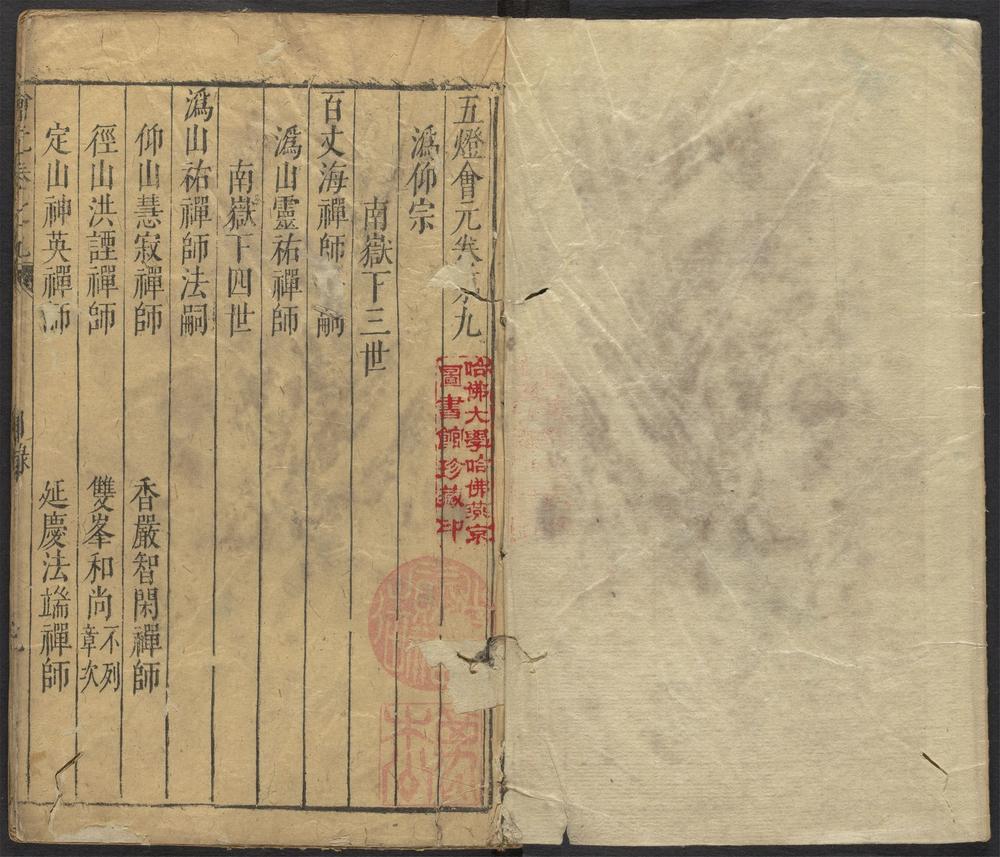 五燈會元卷第九
潙仰宗
南嶽下三世
百丈海禪師 嗣
潙山靈祐禪師
南嶽下四世
潙山祐禪師法嗣
仰山慧寂禪師 香嚴智閑禪師
徑山洪諲禪師 雙峯和尚不列章次
定山神英禪師 延慶法端禪師
哈佛大學哈佛燕京
圖書館珍藏印